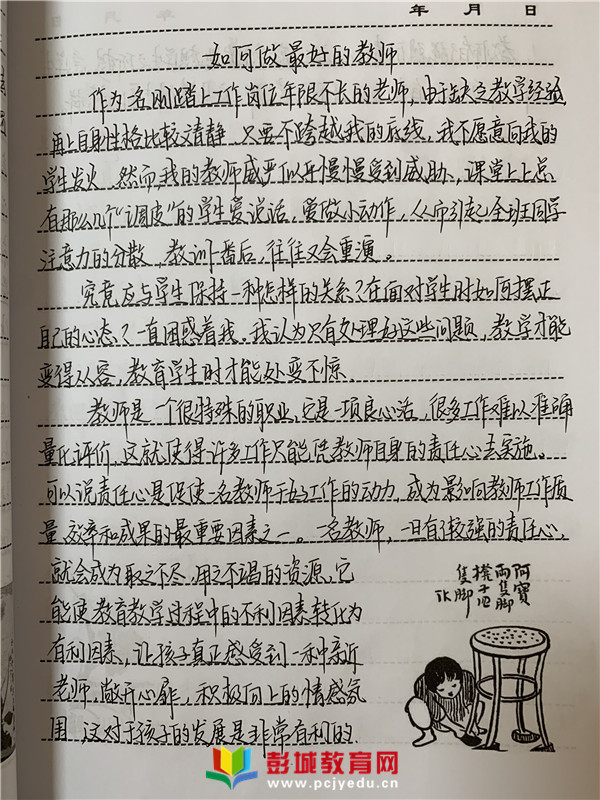 年 月 日
如何做最好的教师
作为一名刚踏上工作岗位年限不长的老师，由于缺乏教学经验，
再上自身性格比较文静，只要不跨越我的底线，我不愿意向我的
学生发火。然而我的教师威严似乎慢慢受到威胁，课堂上总
有那么几个“调皮”的学生爱说话，爱做小动作，从而引起全班同学
注意力的分散，教训一番后，往往又会重演。
究竟应与学生保持一种怎样的关系？在面对学生时如何摆正
自己的心态？一直困惑着我。我认为只有处理好这些问题，教学才能
变得从容，教育学生时才能处变不惊。
教师是一个很特殊的职业，它是一项良心活，很多工作难以准确
量化评价，这就使得许多工作只能凭教师自身的责任心去实施。
可以说责任心是促使一名教师干好工作的动力，成为影响教师工作质
量、效率和成果的最重要因素之一。一名教师，一旦有了较强的责任心，
就会成为取之不尽，用之不竭的资源，它
能使教育教学过程中的不利因素转化为
有利因素，让孩子真正感受到一种亲近
老师，敞开心扉，积极向上的情感氛
围，这对于孩子的发展是非常有利的
阿寶
兩隻腳
櫈子四
隻腳
TK
彭城教育网
www.pcjyedu.cn